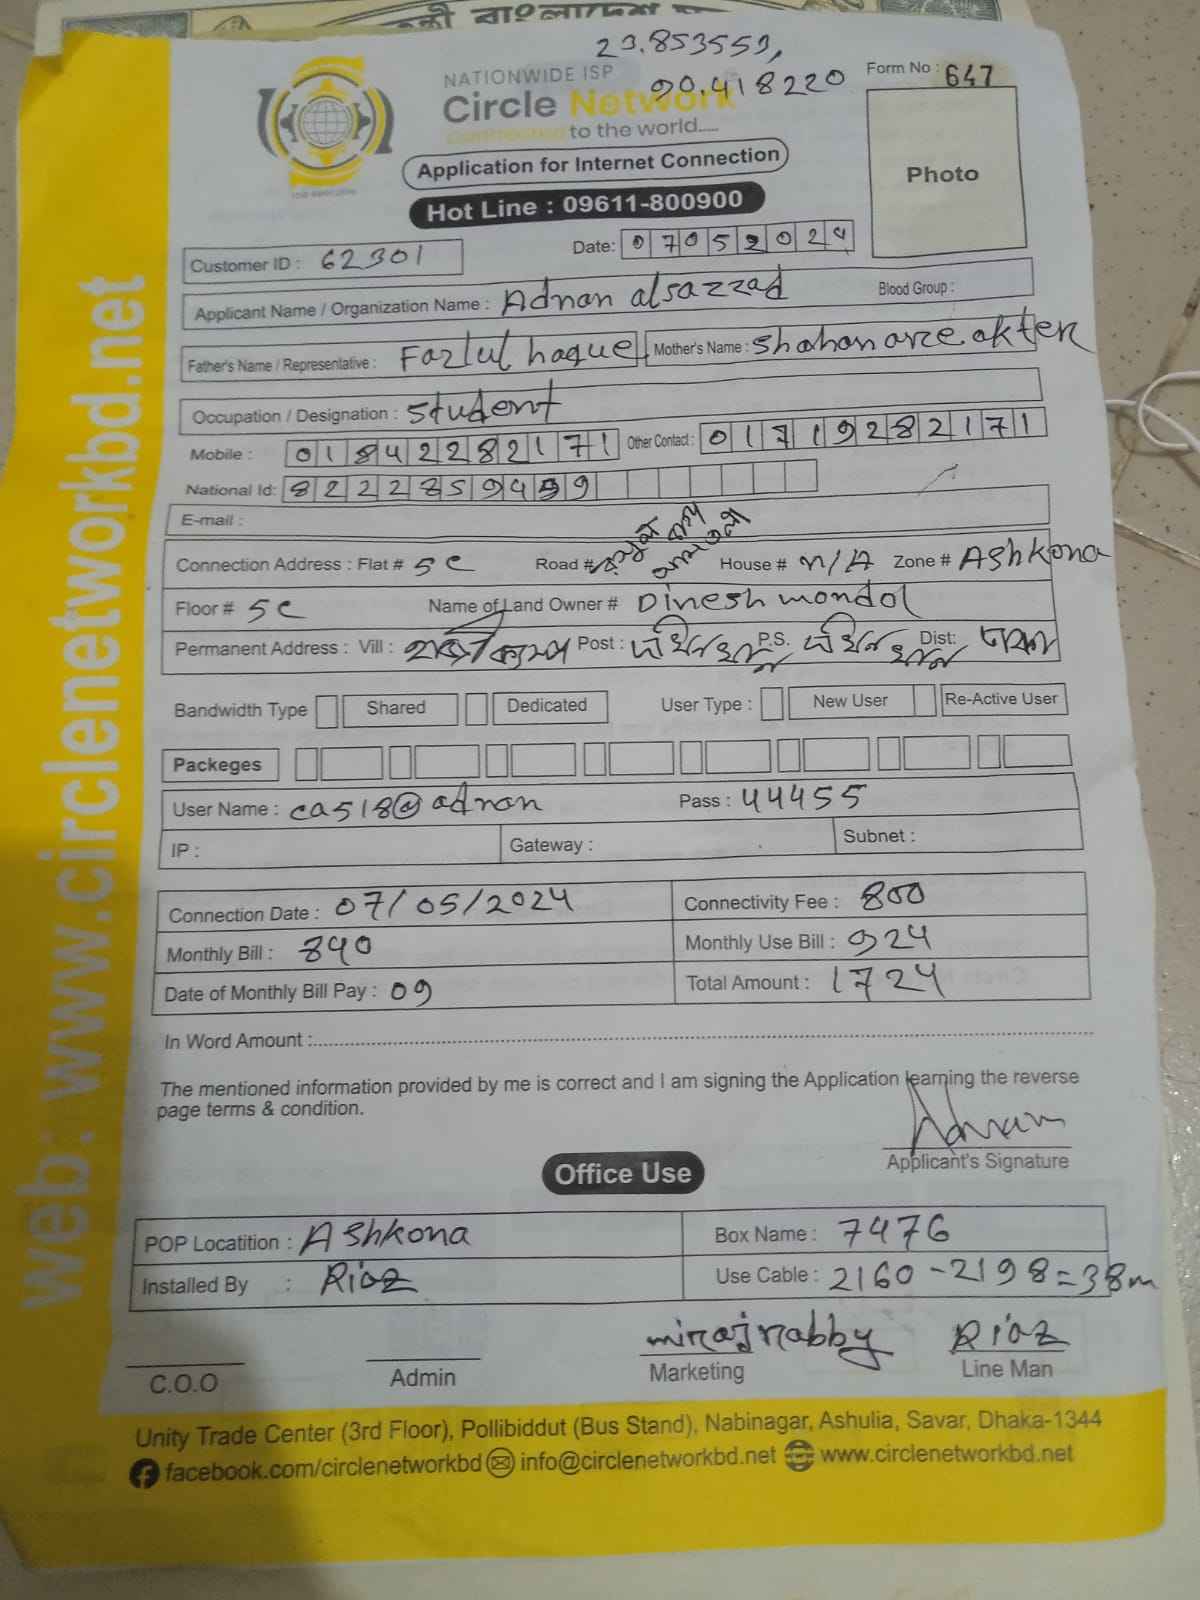 বাংলাদেশ
23.853553,
90.418220
NATIONWIDE ISP
Circle Network
Connected to the world.....
Form No : 647
Photo
Application for Internet Connection
Hot Line : 09611-800900
Customer ID : 62301
Date: 07052024
Applicant Name / Organization Name : Adnan alsazzad
Blood Group :
Father's Name / Representative : Fazlul haque
Mother's Name : Shahanare akter
Occupation / Designation : Student
Mobile : 01842282171
Other Contact : 01719282171
National Id:
E-mail :
Connection Address : Flat # 5c Road # House # N/A Zone # Ashkona
Floor # 5c Name of Land Owner # Dinesh mondol
Permanent Address : Vill : হাজী ক্যাম্প Post : দক্ষিনখান P.S. দক্ষিনখান Dist: ঢাকা
Bandwidth Type Shared Dedicated User Type : New User Re-Active User
Packeges
User Name : ca518@adnan Pass : 44455
IP : Gateway : Subnet :
Connection Date : 07/05/2024 Connectivity Fee : 800
Monthly Bill : 840 Monthly Use Bill : 924
Date of Monthly Bill Pay : 09 Total Amount : 1724
In Word Amount :
The mentioned information provided by me is correct and I am signing the Application learning the reverse
page terms & condition.
Adnan
Applicant's Signature
Office Use
POP Locatition : Ashkona Box Name : 7476
Installed By : Riaz Use Cable : 2160-2198=38m
mirajrabby Riaz
C.O.O Admin Marketing Line Man
Unity Trade Center (3rd Floor), Pollibiddut (Bus Stand), Nabinagar, Ashulia, Savar, Dhaka-1344
facebook.com/circlenetworkbd info@circlenetworkbd.net www.circlenetworkbd.net
web: www.circlenetworkbd.net